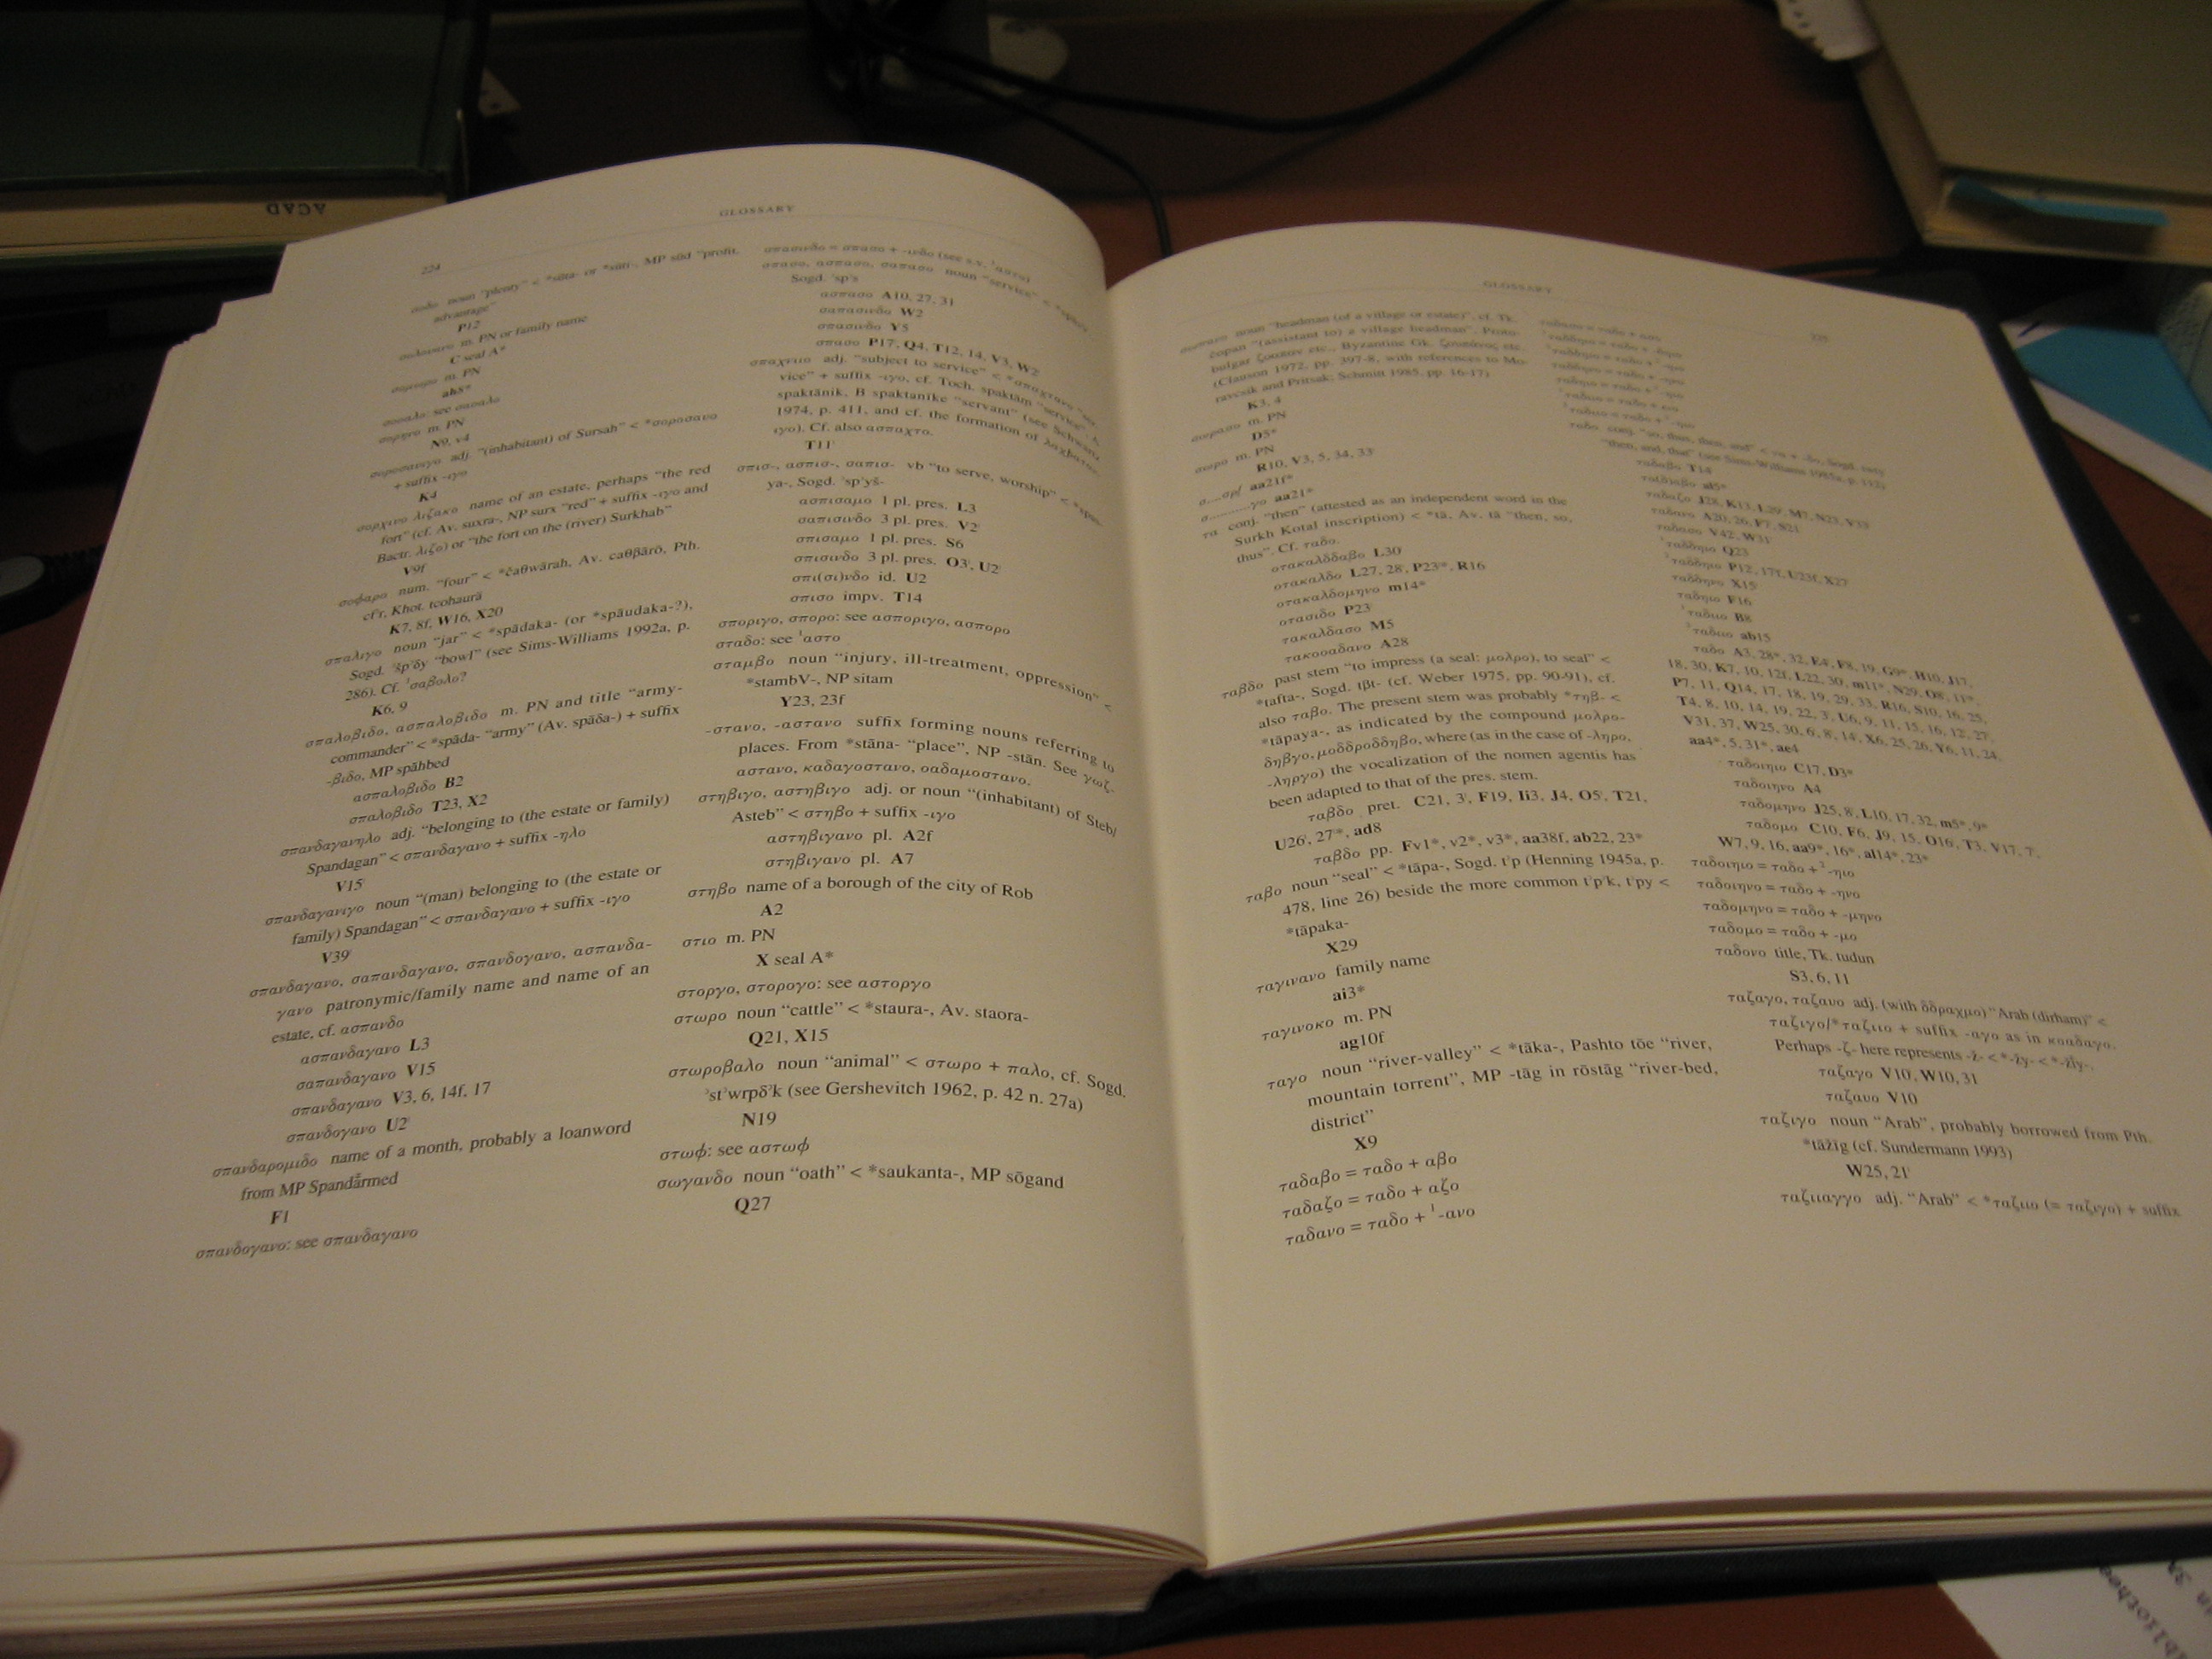 224
GLOSSARY
noun "plenty" < *sūta- or *sūti-, MP sūd "profit,
advantage"
P12
m. PN or family name
C seal A*
m. PN
ah8*
m. PN
N9, v4
adj. "(inhabitant) of Sursah" <
+ suffix -ιγο
K4
σορχινο λιζακο name of an estate, perhaps "the red
fort" (cf. Av. suxra-, NP surx "red" + suffix -ιγο and
Bactr. λιζο) or "the fort on the (river) Surkhab"
V9f
σοφαρο num. "four" < *čaθwārah, Av. caθβārō, Pth.
cfʾr, Khot. tcohaurä
K7, 8f, W16, X20
σπαλιγο noun "jar" < *spādaka- (or *spāudaka-?),
"bowl" (see Sims-Williams 1992a, p.
286). Cf. ¹σαβολο?
K6, 9
σπαλοβιδο, ασπαλοβιδο m. PN and title "army-
commander" < *spāda- "army" (Av. spāδa-) + suffix
-βιδο, MP spāhbed
ασπαλοβιδο B2
σπαλοβιδο T23, X2
σπανδαγανηλο adj. "belonging to (the estate or family)
Spandagan" < σπανδαγανο + suffix -ηλο
V15
σπανδαγανιγο noun "(man) belonging to (the estate or
family) Spandagan" < σπανδαγανο + suffix -ιγο
V39
σπανδαγανο, σαπανδαγανο, σπανδογανο, ασπανδα-
γανο patronymic/family name and name of an
estate, cf. ασπανδο
ασπανδαγανο L3
σαπανδαγανο V15
σπανδαγανο V3, 6, 14f, 17
σπανδογανο U2
σπανδαρομιδο name of a month, probably a loanword
from MP Spandārmed
F1
σπανδογανο: see σπανδαγανο
σπασινδο = σπασο + -ινδο (see s.v. ¹αστο)
σπασο, ασπασο, σαπασο noun "service" <
Sogd. ʾspʾs
ασπασο A10, 27, 31
σαπασινδο W2
σπασινδο Y5
σπασο P17, Q4, T12, 14, V3, W2
σπαχνιιο adj. "subject to service" < "ser-
vice" + suffix -ιγο, cf. Toch. spaktāṃ "service", A
spaktānik, B spaktanīke "servant" (see Schwartz
1974, p. 411, and cf. the formation of
ιγο). Cf. also ασπαχτο.
T11
σπισ-, ασπισ-, σαπισ- vb "to serve, worship" <
ya-, Sogd. ʾspʾyš-
ασπισαμο 1 pl. pres. L3
σαπισινδο 3 pl. pres. V2
σπισαμο 1 pl. pres. S6
σπισινδο 3 pl. pres. O3', U2'
σπι(σι)νδο id. U2
σπισο impv. T14
σποριγο, σπορο: see ασποριγο, ασπορο
σταδο: see ¹αστο
σταμβο noun "injury, ill-treatment, oppression" <
*stambV-, NP sitam
Y23, 23f
-στανο, -αστανο suffix forming nouns referring to
places. From *stāna- "place", NP -stān. See γωζ-
αστανο, καδαγοστανο, οαδαμοστανο.
στηβιγο, αστηβιγο adj. or noun "(inhabitant) of Steb/
Asteb" < στηβο + suffix -ιγο
αστηβιγανο pl. A2f
στηβιγανο pl. A7
στηβο name of a borough of the city of Rob
A2
στιο m. PN
X seal A*
στοργο, στορογο: see αστοργο
στωρο noun "cattle" < *staura-, Av. staora-
Q21, X15
στωροβαλο noun "animal" < στωρο + παλο, cf. Sogd.
ʾstʾwrpδʾk (see Gershevitch 1962, p. 42 n. 27a)
N19
στωφ: see αστωφ
σωγανδο noun "oath" < *saukanta-, MP sōgand
Q27
GLOSSARY
noun "headman (of a village or estate)", cf. Tk.
čopan "(assistant to) a village headman", Proto-
bulgar ζουπαν etc., Byzantine Gk. ζουπάνος etc.
(Clauson 1972, pp. 397-8, with references to Mo-
ravcsik and Pritsak; Schmitt 1985, pp. 16-17)
K3, 4
m. PN
D5*
m. PN
R10, V3, 5, 34, 33'
aa21f*
aa21*
τα conj. "then" (attested as an independent word in the
Surkh Kotal inscription) < *tā, Av. tā "then, so,
thus". Cf. ταδο.
οτακαλδδαβο L30
οτακαλδο L27, 28, P23*, R16
οτακαλδομηνο m14*
οτασιδο P23
τακαλδασο M5
τακοοαδανο A28
ταβδο past stem "to impress (a seal: μολρο), to seal" <
*tafta-, Sogd. tβt- (cf. Weber 1975, pp. 90-91), cf.
also ταβο. The present stem was probably *τηβ- <
*tāpaya-, as indicated by the compound μολρο-
δηβγο, μοδδροδδηβο, where (as in the case of -ληρο,
-ληργο) the vocalization of the nomen agentis has
been adapted to that of the pres. stem.
ταβδο pret. C21, 3', F19, Ii3, J4, O5', T21,
U26', 27'*, ad8
ταβδο pp. Fv1*, v2*, v3*, aa38f, ab22, 23*
ταβο noun "seal" < *tāpa-, Sogd. tʾp (Henning 1945a, p.
478, line 26) beside the more common tʾpʾk, tʾpy <
*tāpaka-
X29
ταγιναvο family name
ai3*
ταγινοκο m. PN
ag10f
ταγο noun "river-valley" < *tāka-, Pashto tōe "river,
mountain torrent", MP -tāg in rōstāg "river-bed,
district"
X9
ταδαβο = ταδο + αβο
ταδαζο = ταδο + αζο
ταδανο = ταδο + ¹-ανο
ταδο conj. "so, thus, then, and" < τα + -δο, Sogd.
"then, and, that" (see Sims-Williams 1985a, p. 112)
ταδαβο T14
τα(δ)αβο al5*
ταδαζο J28, K13, L29, M7, N23, V33
ταδανο A20, 26, F7, S21
ταδασο V42, W31
¹ταδδηιο Q23
²ταδδηιο P12, 17f, U23f, X27
ταδδηνο X15
ταδηιο F16
¹ταδιιο B8
²ταδιιο ab15
ταδο A3, 28*, 32, E4, F8, 19, G9*, H10, J17,
18, 30, K7, 10, 12f, L22, 30, m11*, N29, O8', 11'*,
P7, 11, Q14, 17, 18, 19, 29, 33, R16, S10, 16, 25,
T4, 8, 10, 14, 19, 22, 3', U6, 9, 11, 15, 16, 12', 27',
V31, 37, W25, 30, 6', 8', 14', X6, 25, 26, Y6, 11, 24,
aa4*, 5, 31*, ae4
ταδοιηιο C17, D3*
ταδοιηνο A4
ταδομηνο J25, 8', L10, 17, 32, m5*, 9*
ταδομο C10, F6, J9, 15, O16', T3, V17, 7',
W7, 9, 16, aa9*, 16*, al14*, 23*
ταδοιηιο = ταδο + ²-ηιο
ταδοιηνο = ταδο + -ηνο
ταδομηνο = ταδο + -μηνο
ταδομο = ταδο + -μο
ταδονο title, Tk. tudun
S3, 6, 11
ταζαγο, ταζαυο adj. (with δδραχμο) "Arab (dirham)" <
ταζιγο/*ταζιιο + suffix -αγο as in κοαδαγο.
Perhaps -ζ- here represents -ž- < *-žy- < *-žīy-.
ταζαγο V10', W10, 31
ταζαυο V10
ταζιγο noun "Arab", probably borrowed from Pth.
*tāžīg (cf. Sundermann 1993)
W25, 21'
ταζιιαγγο adj. "Arab" < *ταζιιο (= ταζιγο) + suffix